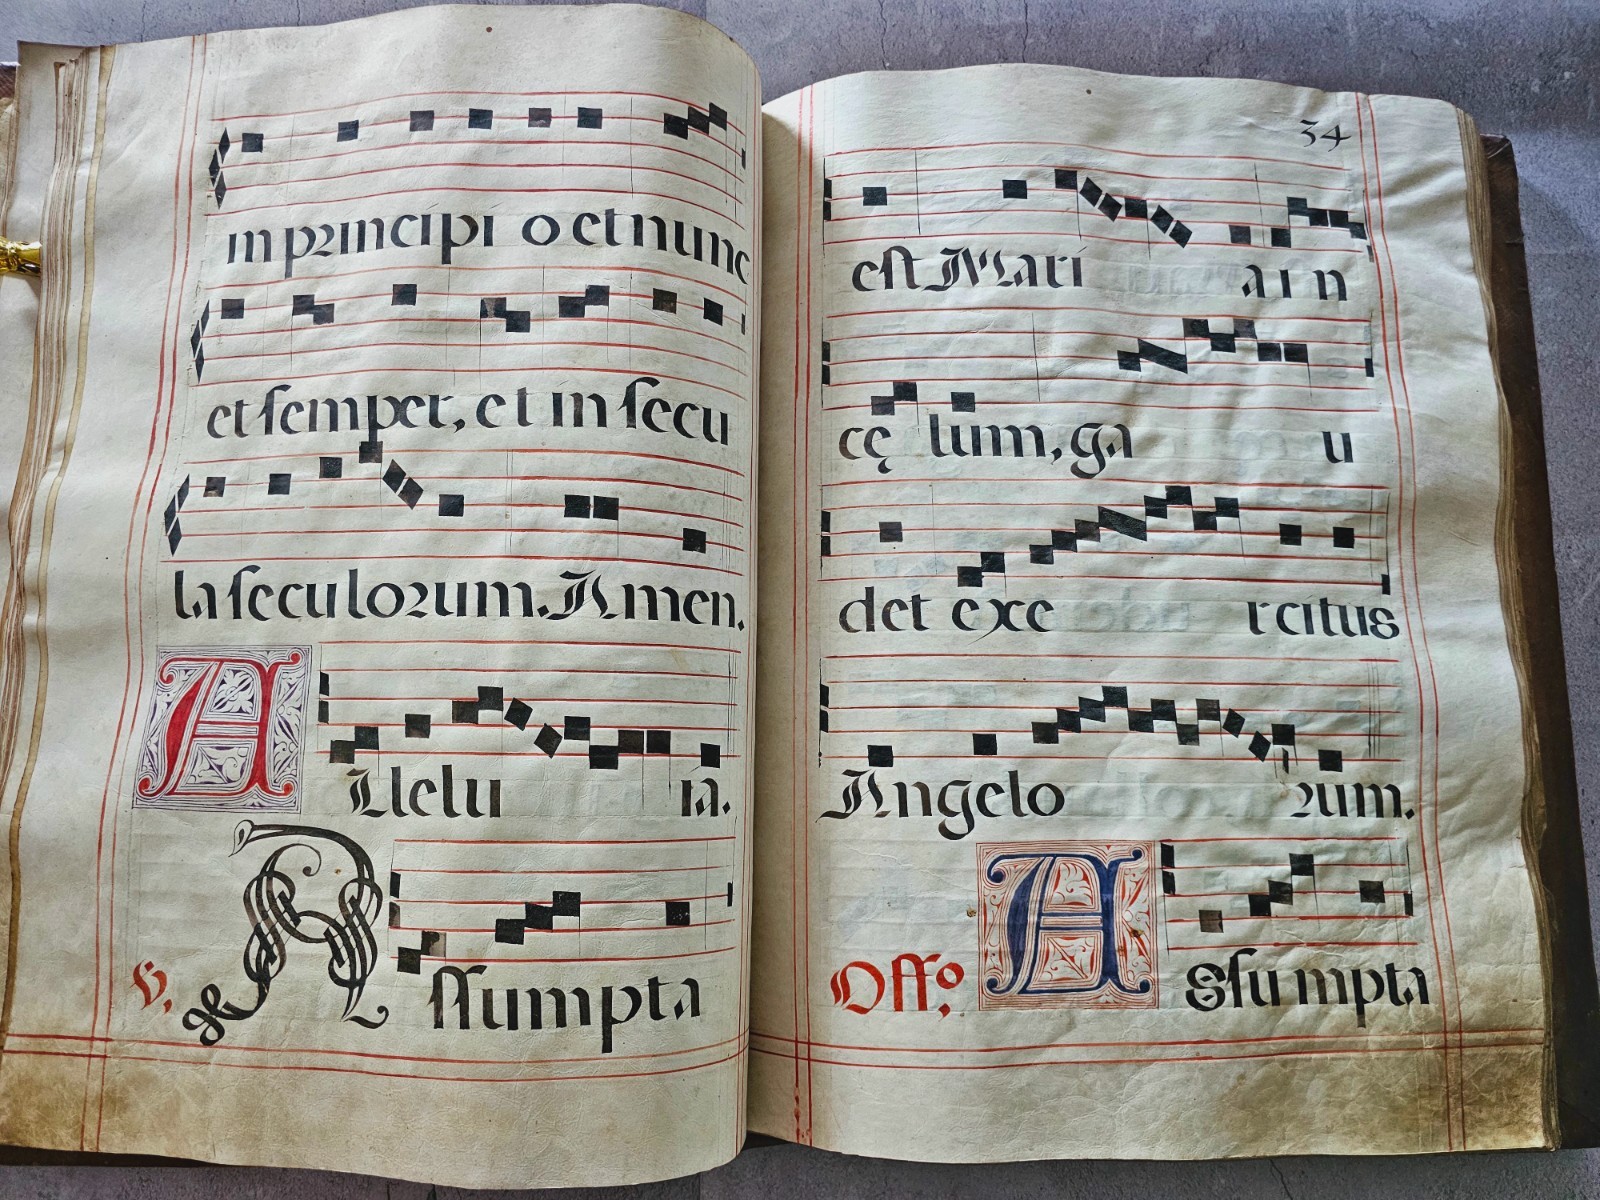 in principi o et nunc
et ſemper, et in ſecu
la ſeculorum. Amen.
Allelu ia.
℣. Aſſumpta
34
eſt Mari a i n
cę lum, ga u
det exe rcitus
Angelo rum.
Offo, Asſu mpta